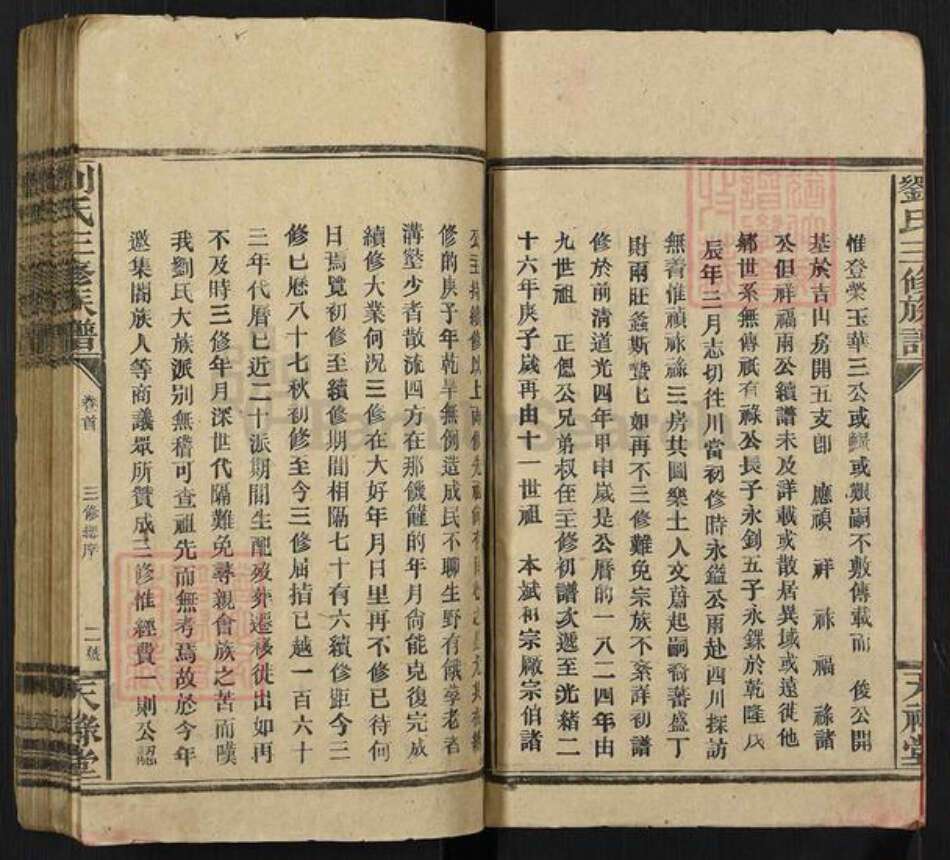 劉氏三修族譜
天祿堂
惟登榮玉華三公或鰥或艱嗣不敷傳載而 俊公開
基於吉山房開五支卽 應禎 祥 祿 福 祿諸
公但祥福兩公續譜未及詳載或散居異域或遠徙他
鄉世系無傳祇有祿公長子永釗五子永錁於乾隆戊
辰年三月志切徃川當初修時永鎰公兩赴四川探訪
無着惟禎祿祿三房共圖樂土人文蔚起嗣裔蕃盛丁
財兩旺螽斯蟄蟄如再不三修難免宗族不紊詳初譜
修於前清道光四年甲申歲是公曆的一八二四年由
九世祖 正偲公兄弟叔侄主修初譜次遞至光緒二
十六年庚子歲再由十一世祖 本斌和宗廠宗伯諸
公主持續修以上兩修先祖
修的庚子年乾旱無例造成民不聊生野有餓莩老者
溝壑少者散流四方在那饑饉的年月尙能克復完成
續修大業何況三修在大好年月日里再不修已待何
日焉覽初修至續修期間相隔七十有六續修距今三
修已歷八十七秋初修至今三修屈指已越一百六十
三年代曆已近二十派期間生配歿葬遷移徙出如再
不及時三修年月深世代隔難免尋親會族之苦而嘆
我劉氏大族派別無稽可查祖先而無考焉故於今年
邀集閤族人等商議眾所贊成三修惟經費一則公認
劉氏三修族譜
卷首
三修總序
二號
天祿堂